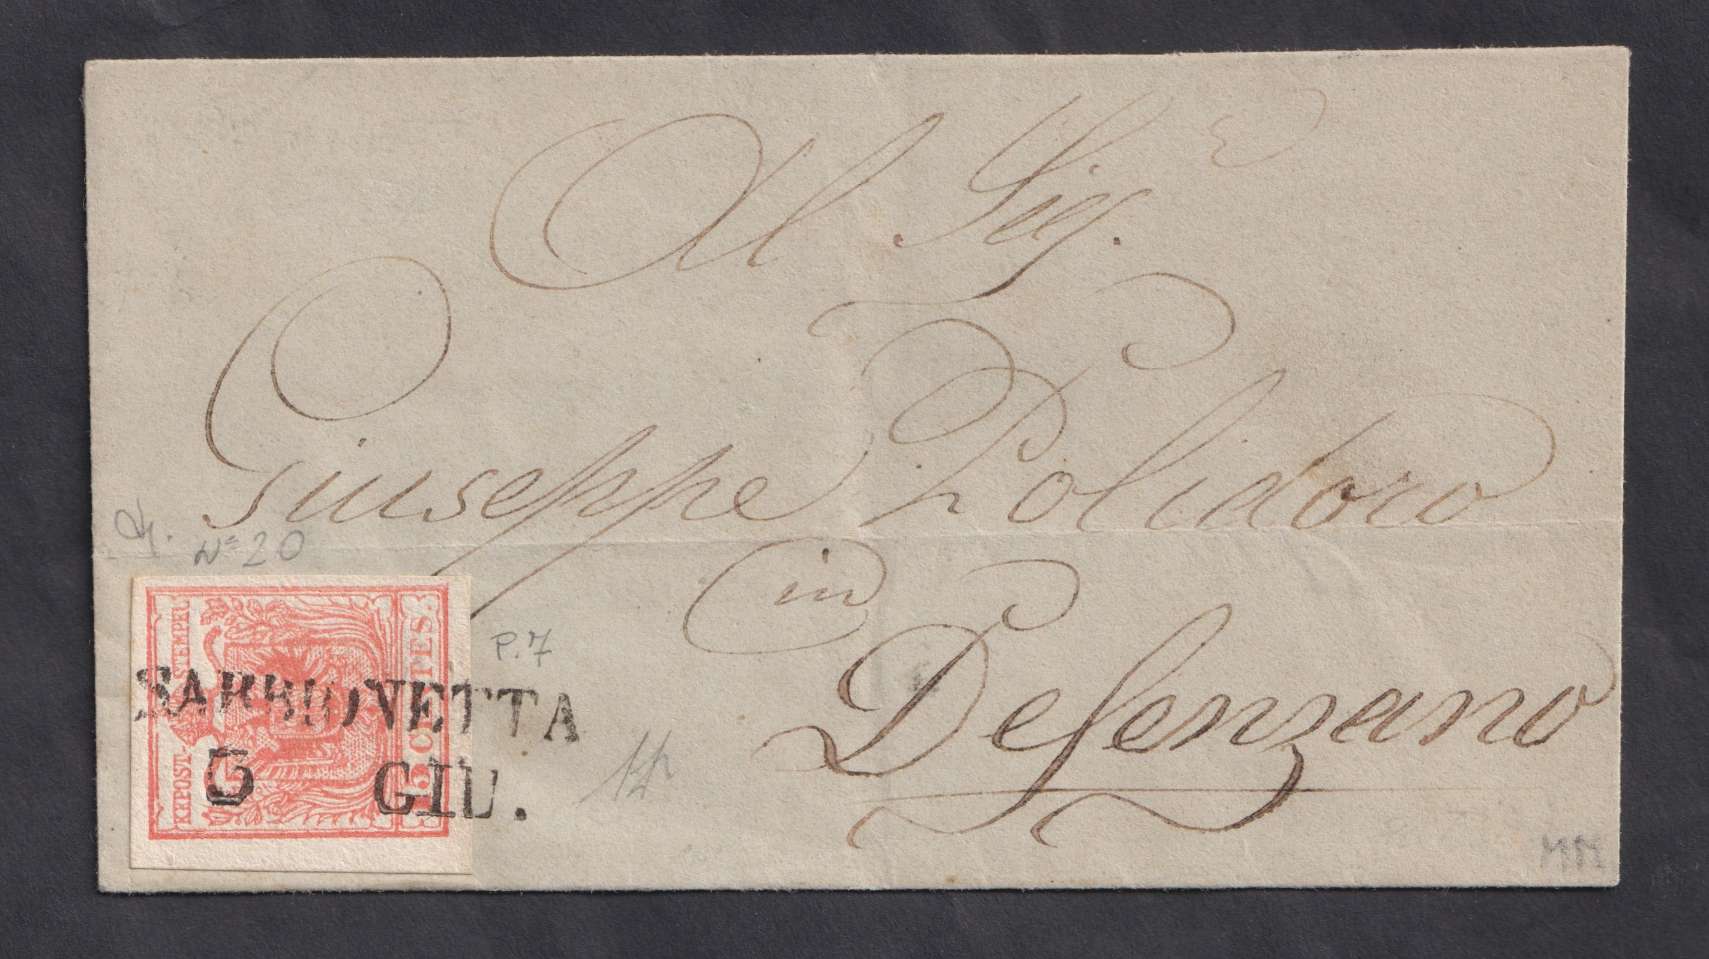 Al Sig.
Giuseppe Polidoro
in
Desenzano
N= 20
P.7
KKPOST-STEMPEL
15 CENTES.
SABBIONETTA
5 GIU.
MM